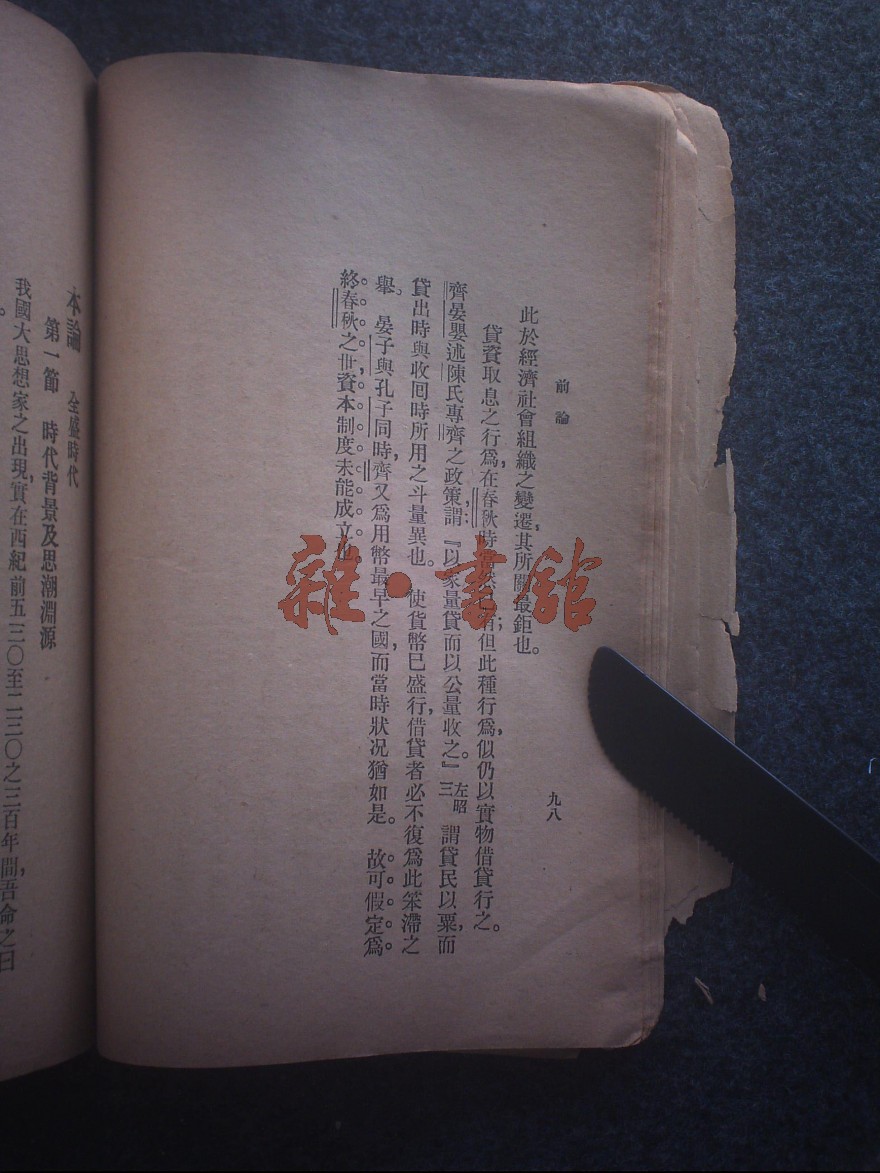 前論
九八
此於經濟社會組織之變遷,其所關最鉅也。
貸資取息之行爲,在春秋時當然已有;但此種行爲,似仍以實物借貸行之。
齊晏嬰述陳氏專齊之政策,謂:『以家量貸而以公量收之。』左昭三謂貸民以粟,而
貸出時與收囘時所用之斗量異也。使貨幣已盛行,借貸者必不復爲此笨滯之
舉。晏子與孔子同時,齊又爲用幣最早之國,而當時狀況猶如是。故可假定爲
終春秋之世,資本制度未能成立也。
雜·書館
本論 全盛時代
第一節 時代背景及思潮淵源
我國大思想家之出現,實在西紀前五三〇至二三〇之三百年間,吾命之曰